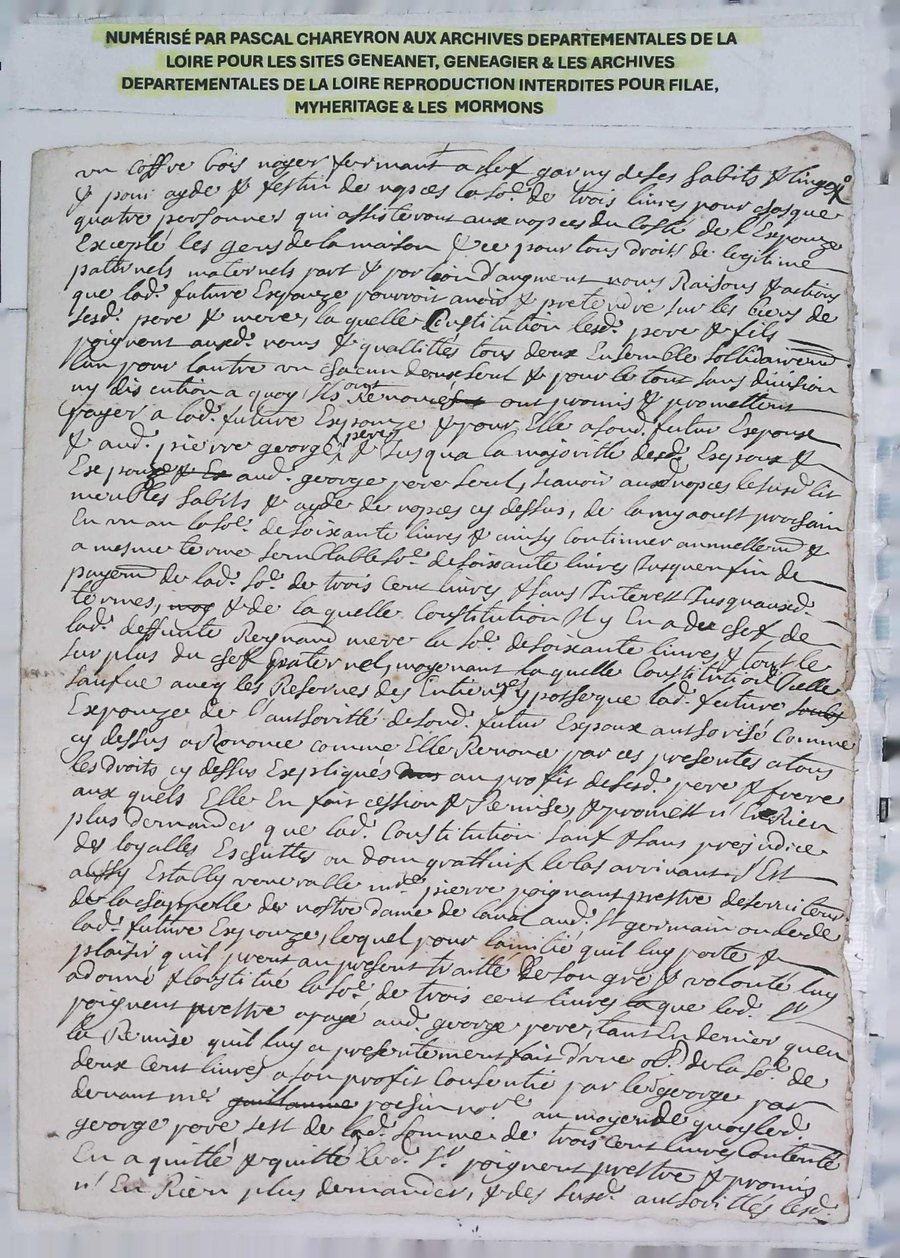 NUMÉRISÉ PAR PASCAL CHAREYRON AUX ARCHIVES DEPARTEMENTALES DE LA
LOIRE POUR LES SITES GENEANET, GENEAGIER & LES ARCHIVES
DEPARTEMENTALES DE LA LOIRE REPRODUCTION INTERDITES POUR FILAE,
MYHERITAGE & LES MORMONS
un coffre bois noyer fermant a clef garny de ses habits & linge
& pour ayde & festin de nopces la so.e de trois livres pour chasque
quatre personnes qui assisteront aux nopces du costé de l'Espouze
Excepté les gens de la maison & ce pour tous droits de legitime
patternels maternels part & portion d'augment noms Raisons & actions
que lad.e future Espouze pourroit avoir & pretendre sur les biens de
sesd. pere & mere, la quelle Constitution lesd. pere & fils
poignent ausd. noms & quallittés tous deux Ensemble sollidairem.t
l'un pour l'autre un chacun deux seul & pour le tout sans division
ny discution a quoy ils ont Renoncé ont promis & promettent
payer a lad. future Espouze & pour Elle a son d. futur Espoux
& aud. pierre george pere & Jusqua la majoritté desd. Espoux &
Espouze aud. george pere seul, scavoir aux nopces le susd. lit
meubles habits & ayde de nopces cy dessus, de la my aoust prochain
En un an la so.e de soixante livres & ainsy continuer annuellem.t &
a mesme terme semblable so.e de soixante livres Jusquen fin de
payem.t de lad. so.e de trois cent livres & sans Interest Jusquausd.
termes, & de la quelle Constitution Il y En a du chef de
lad. deffunte Reynaud mere la so.e de soixante livres & tout le
surplus du chef paternel, moyenant la quelle Constitution Icelle
sauf ue aveq les Reserves des Entiers posseque lad. future
Expouze de l'authoritté de sond. futur Expoux authorisé Comme
cy dessus a Renoncé comme Elle Renonce par ces presentes a tous
les droits cy dessus Expliqués au profit de sesd. pere & frere
aux quels Elle En fait cession & Remise, & promett n'En Rien
plus demander que lad. Constitution sauf & sans prejudice
des loyalles Escuttes ou don grattuit le cas arrivant, S'Est
aussy Estably venerable m.re pierre poignant prestre desserviteur
de la chappelle de nostre dame de laval aud. St germain oncle de
lad. future Espouze, lequel pour lamitié quil luy porte &
plaisir quil prent au present traitté de son gré & volonté luy
a donné & Constitué la so.e de trois cent livres que led. Sr
poignent prestre a payé aud. george pere, tant En denier quen
la Remise quil luy a presentement fait d'une obl. de la so.e de
deux cent livres a son profit Consentie par led. george par
devant me. poesin not.re au moyen de quoy led.
george pere s'est de lad. somme de trois cent livres Contenté
En a quitté & quitte led. Sr. poignent prestre & promis
n'En Rien plus demander, & des susd. authorittés lesd.